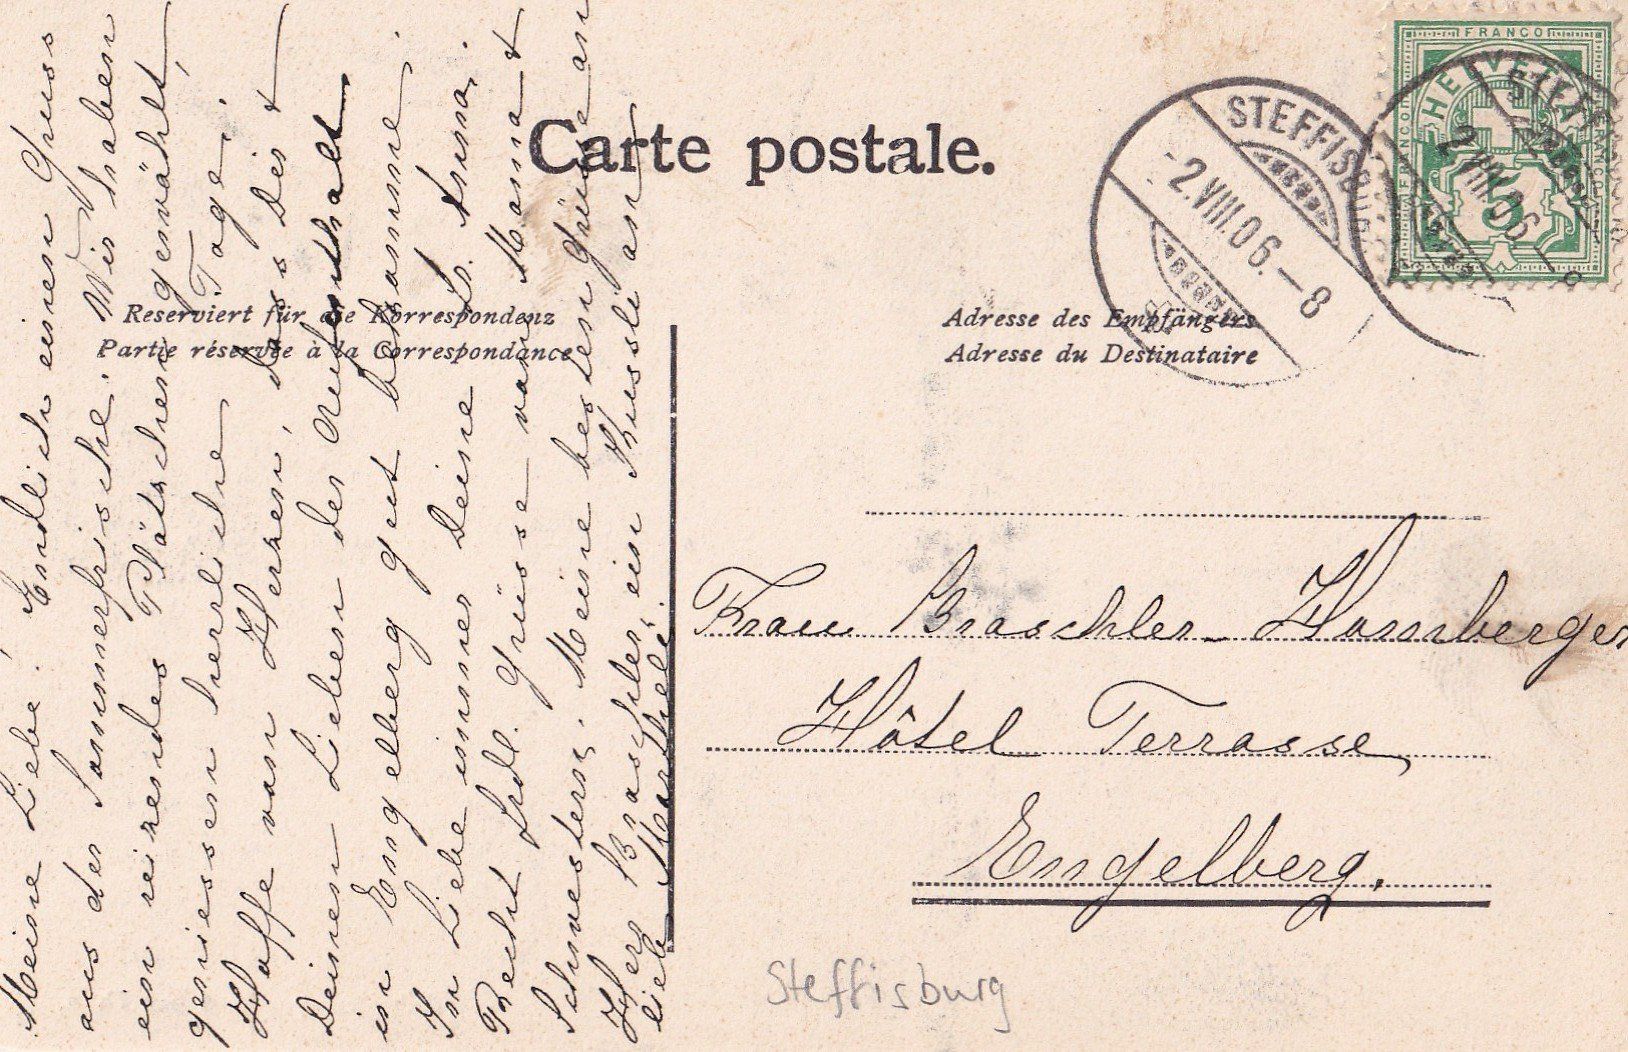 Carte postale.
Reserviert für die Korrespondenz
Partie réservée à la Correspondance
Adresse des Empfängers
Adresse du Destinataire
FRANCO
HELVETIA
FRANCO
FRANCO
5
STEFFISBURG
-2.VIII.06.-8
STEFFISBURG
2.VIII.06
Meine Liebe! Endlich einen Gruss
aus der Sommerfrische. Wir haben
ein reizendes Plätzchen gewählt,
geniessen herrliche Tage.
Hoffe von Herzen, dass Dir &
Deinen Lieben der Aufenthalt
in Engelberg gut bekomme.
In Liebe immer Deine Fr.
Recht frdl. Grüsse von Mama &
Schwestern. Meine besten Grüsse an
Herr Braschler, ein Küssli an
lieb
Frau Braschler-Homberger
Hôtel Terrasse,
Engelberg.
Steffisburg